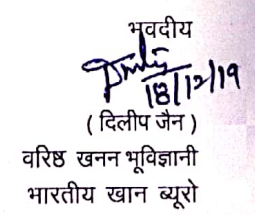 भवदीय
18/12/19
( दिलीप जैन )
वरिष्ठ खनन भूविज्ञानी
भारतीय खान ब्यूरो